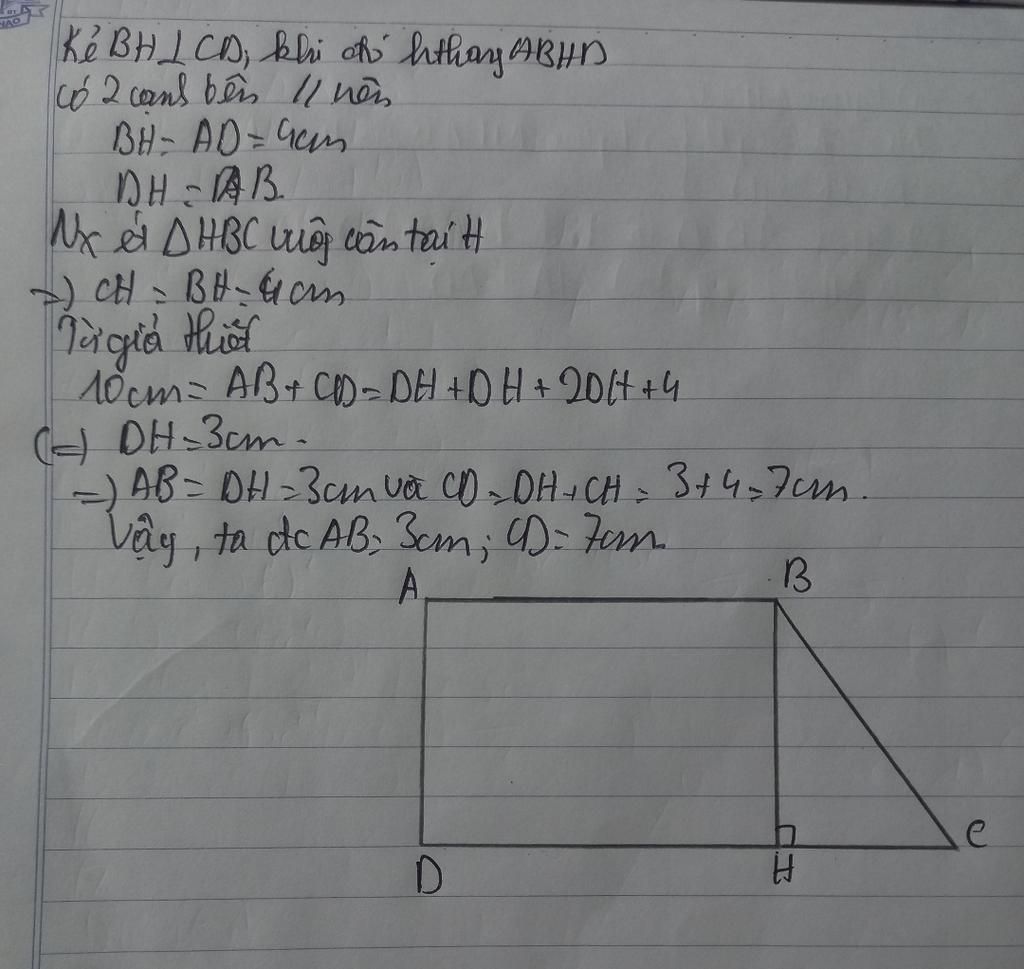 Kẻ BH⊥CD, khi đó hthang ABHD
có 2 cạnh bên // nên
BH = AD = 4cm
DH = AB.
Nx ét ΔHBC vuôg cân tại H
=) CH = BH = 4cm
Từ giả thiết
10cm = AB + CD = DH + DH + 2DH + 4
(=) DH = 3cm.
=) AB = DH = 3cm và CD = DH + CH = 3 + 4 = 7cm.
Vậy, ta đc AB = 3cm; CD = 7cm
A
B
D
H
C